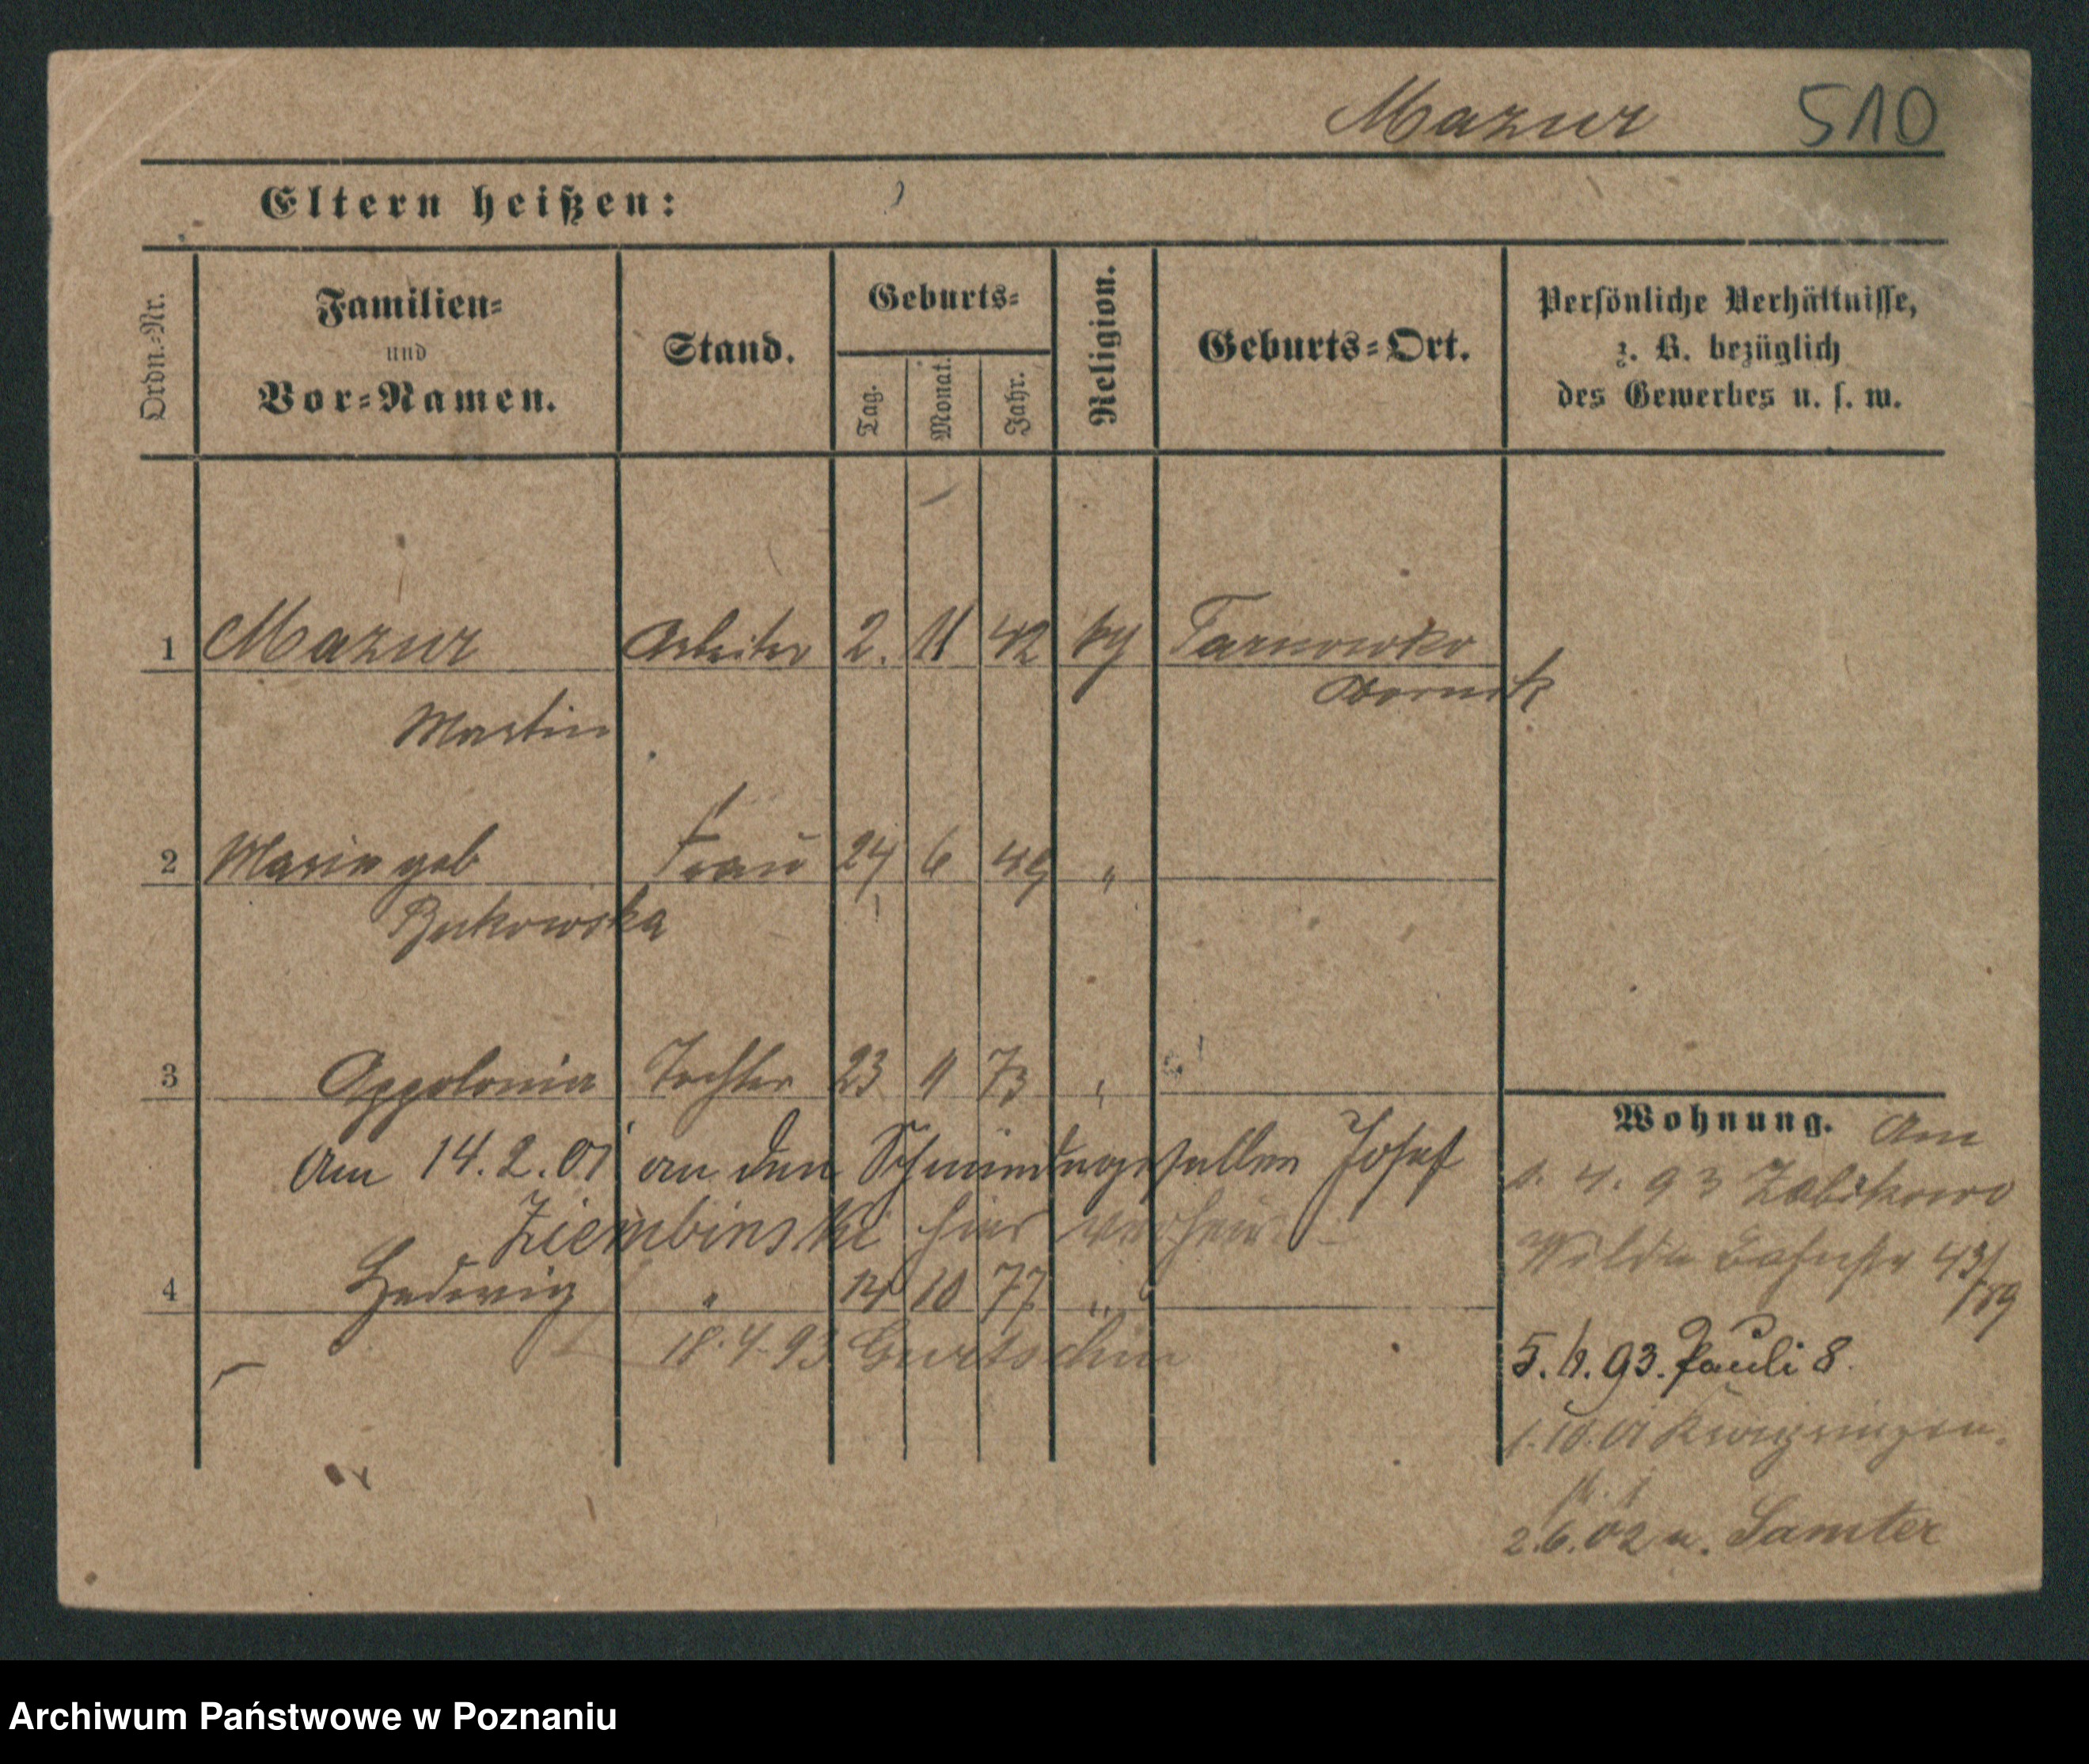 Mazur 510
Eltern heißen:
Ordn.-Nr.
Familien-
und
Vor-Namen.
Stand.
Geburts-
Tag.
Monat.
Jahr.
Religion.
Geburts-Ort.
Persönliche Verhältnisse,
z. B. bezüglich
des Gewerbes u. s. w.
1 Mazur Arbeiter 2. 11 42 kg Tarnowko
Obornik
Martin
2 Marie geb Frau 24 6 49 "
Bukowska
3 Appolonia Tochter 23 1 73 "
Am 14.2.01 an den Josef
Ziembinski hier verheir
4 Hedwig " 10 77 "
18.4.93 Gurtschin
Wohnung. Am
4. 93 Zabikowo
Wilda 43/
/89
5. 4. 93. Pauli 8.
1.10.01
2.6.02 n. Samter
Archiwum Państwowe w Poznaniu